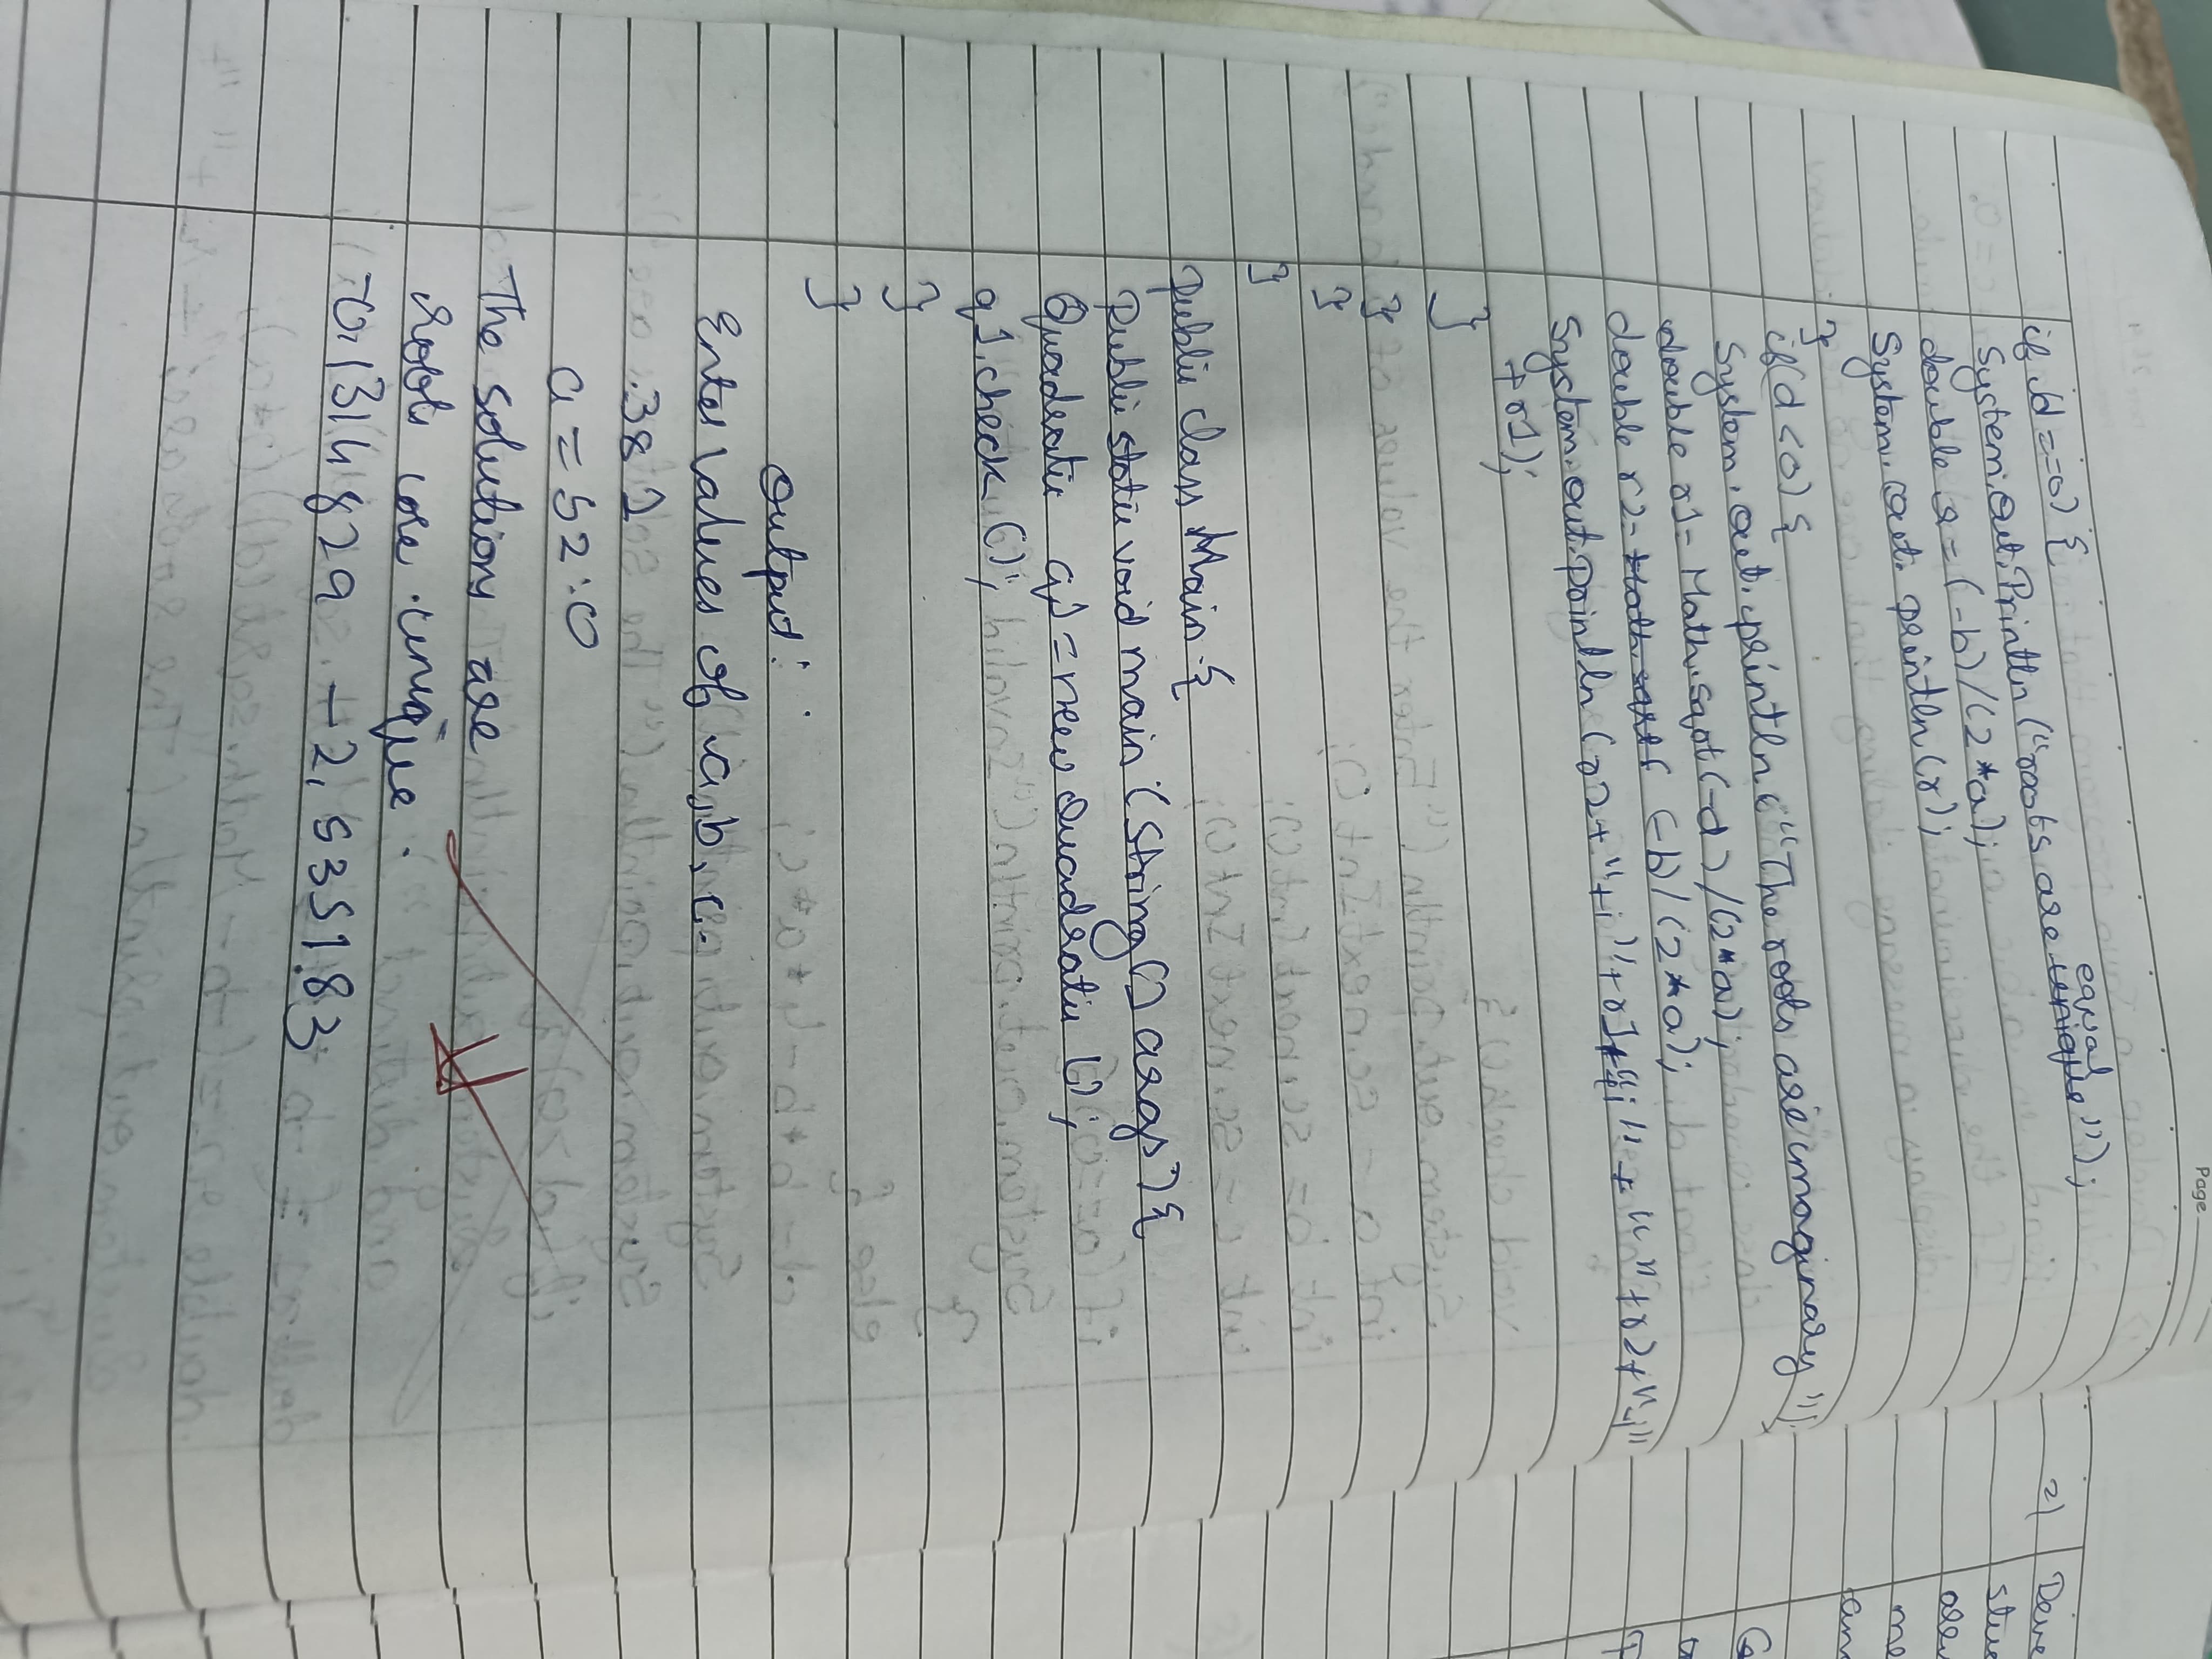 Page
if (d==0) {
System.out.Println ("roots are equal");
double r = (-b)/(2*a);
System.out.println(r);
}
if(d<0) {
System.out.println("The roots are imaginary");
double r1= Math.sqrt(-d)/(2*a);
double r2= (-b)/(2*a);
System.out.println(r2+"+i"+r1+" "+r2+"-i"
+r1);
}
}
}
}
Public class Main {
Public static void main (String[] args) {
Quadratic q1 = new Quadratic ();
q1.check();
}
}
Output:
Enter values of a, b, c.
38 2
a = 52.0
The solutions are
Roots are unique.
-0.1314829 -2.535183
2)